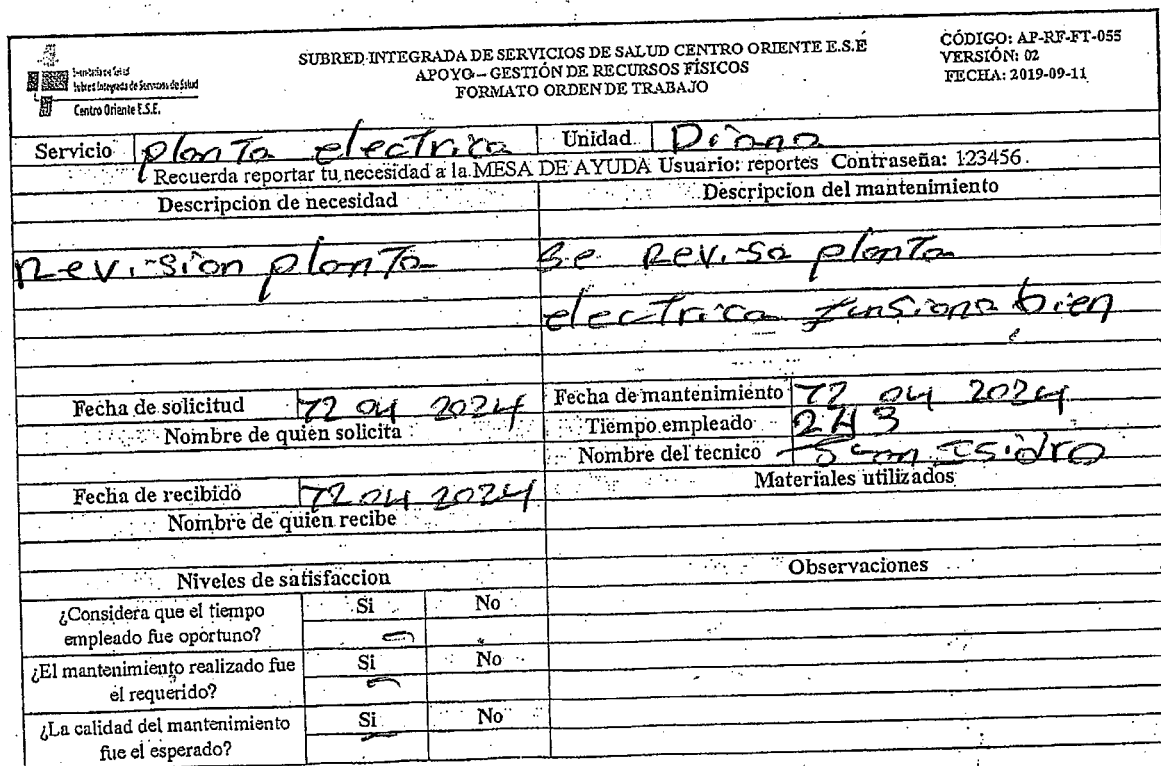 Secretaría de Salud
Subred Integrada de Servicios de Salud
Centro Oriente E.S.E.
SUBRED INTEGRADA DE SERVICIOS DE SALUD CENTRO ORIENTE E.S.E
APOYO – GESTIÓN DE RECURSOS FÍSICOS
FORMATO ORDEN DE TRABAJO
CÓDIGO: AP-RF-FT-055
VERSIÓN: 02
FECHA: 2019-09-11
Servicio planta electrica Unidad Diana
Recuerda reportar tu necesidad a la MESA DE AYUDA Usuario: reportes Contraseña: 123456
Descripcion de necesidad Descripcion del mantenimiento
revision planta se revisa planta
electrica funsiona bien
Fecha de solicitud 12 04 2024 Fecha de mantenimiento 12 04 2024
Nombre de quien solicita Tiempo empleado
Nombre del tecnico Isidro
Fecha de recibido 12 04 2024 Materiales utilizados
Nombre de quien recibe
Niveles de satisfaccion Observaciones
¿Considera que el tiempo empleado fue oportuno? Si No
¿El mantenimiento realizado fue el requerido? Si No
¿La calidad del mantenimiento fue el esperado? Si No